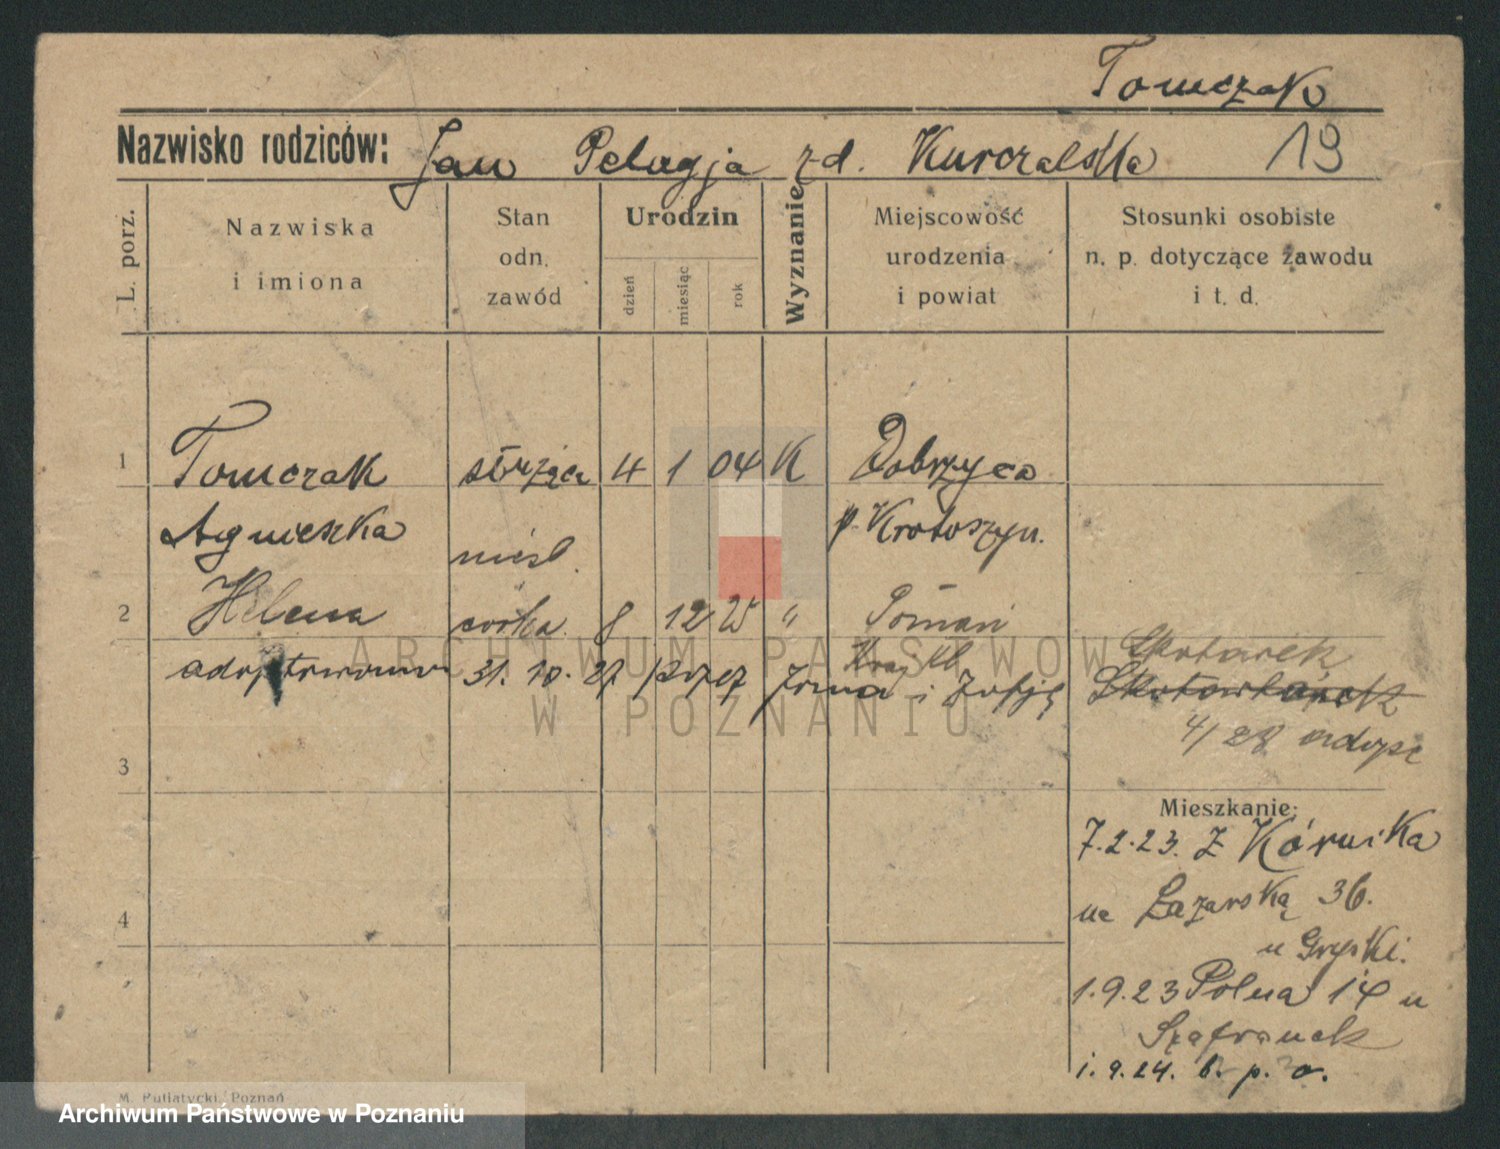 Tomczak
Nazwisko rodziców: Jan Pelagja zd. Kurczalska 19
L. porz.
Nazwiska i imiona
Stan odn. zawód
Urodzin
dzień
miesiąc
rok
Wyznanie
Miejscowość urodzenia i powiat
Stosunki osobiste n. p. dotyczące zawodu i t. d.
1 Tomczak służąca 4 1 04 K Dobrzyca
Agnieszka niezl. p. Krotoszyn.
2 Helena córka 8 12 " Poznań
31. 10. 27 przez i Zofję
Skotarek
4/28 adopc
3
Mieszkanie:
7.2.23. z Kórnika
na Łazarską 36.
u
4
1.9.23 Polna 14 u
Szafranek
1.9.24. b. p. o.
M. Putiatycki, Poznań
ARCHIWUM PAŃSTWOWE
W POZNANIU
Archiwum Państwowe w Poznaniu